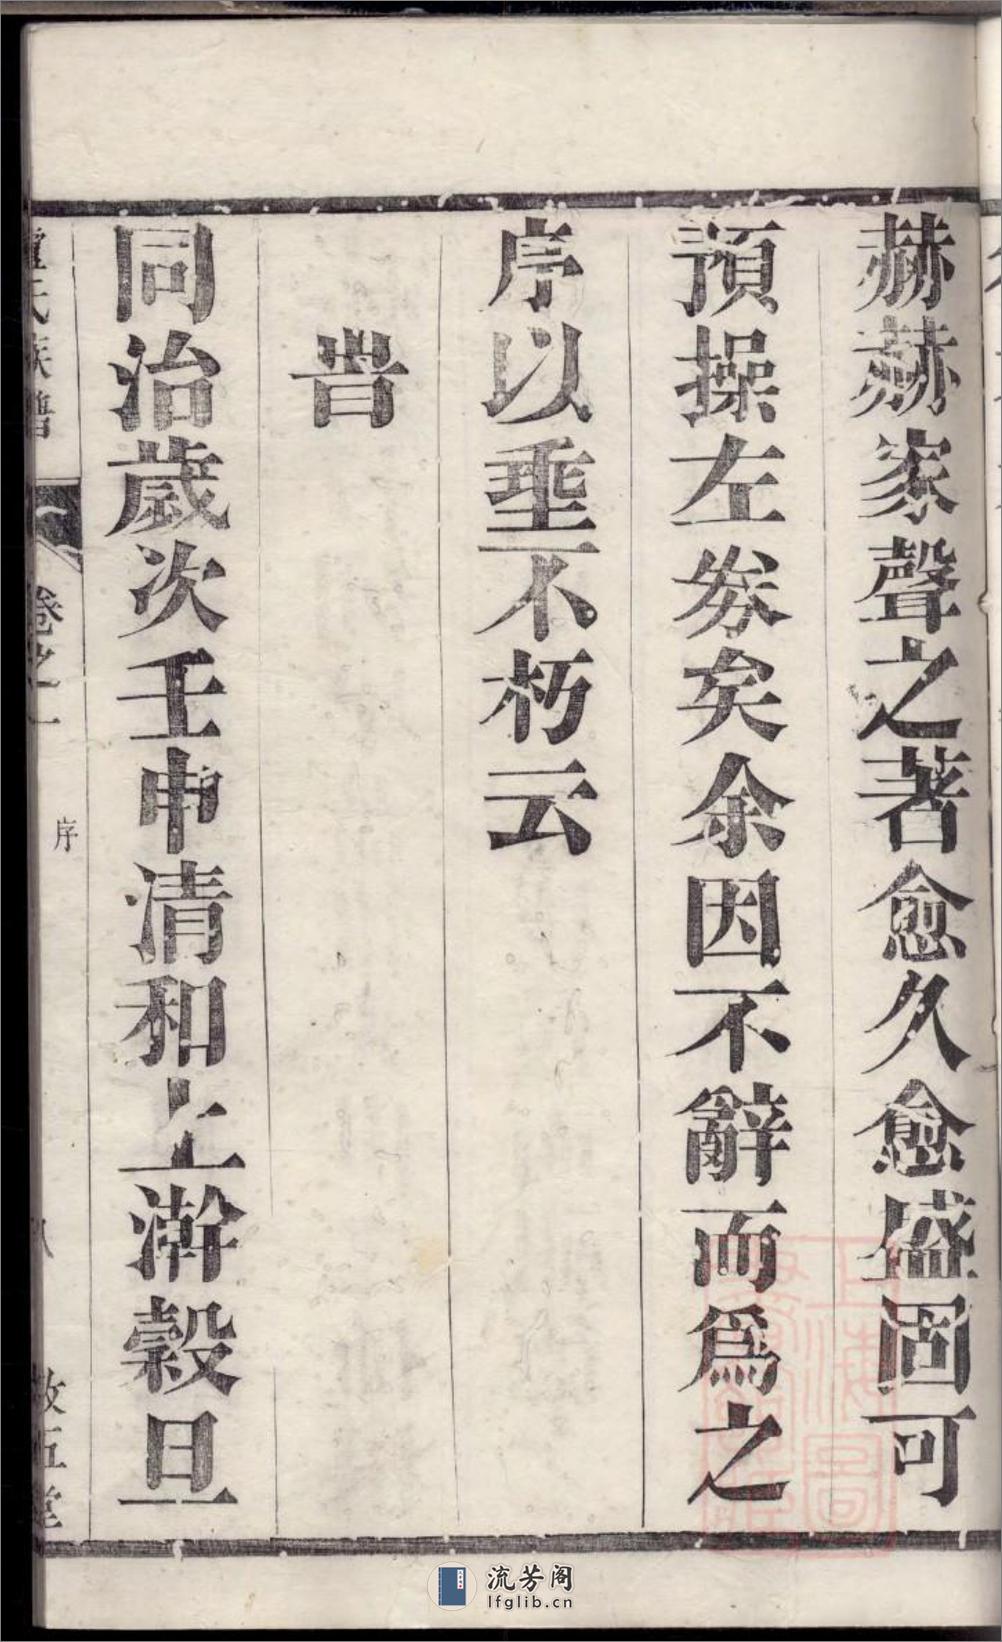 赫赫家聲之著愈久愈盛固可
預操左券矣余因不辭而爲之
序以垂不朽云
旹
同治歲次壬申清和上澣穀旦
氏族譜
卷之一
序
八
敘五堂
流芳阁
lfglib.cn